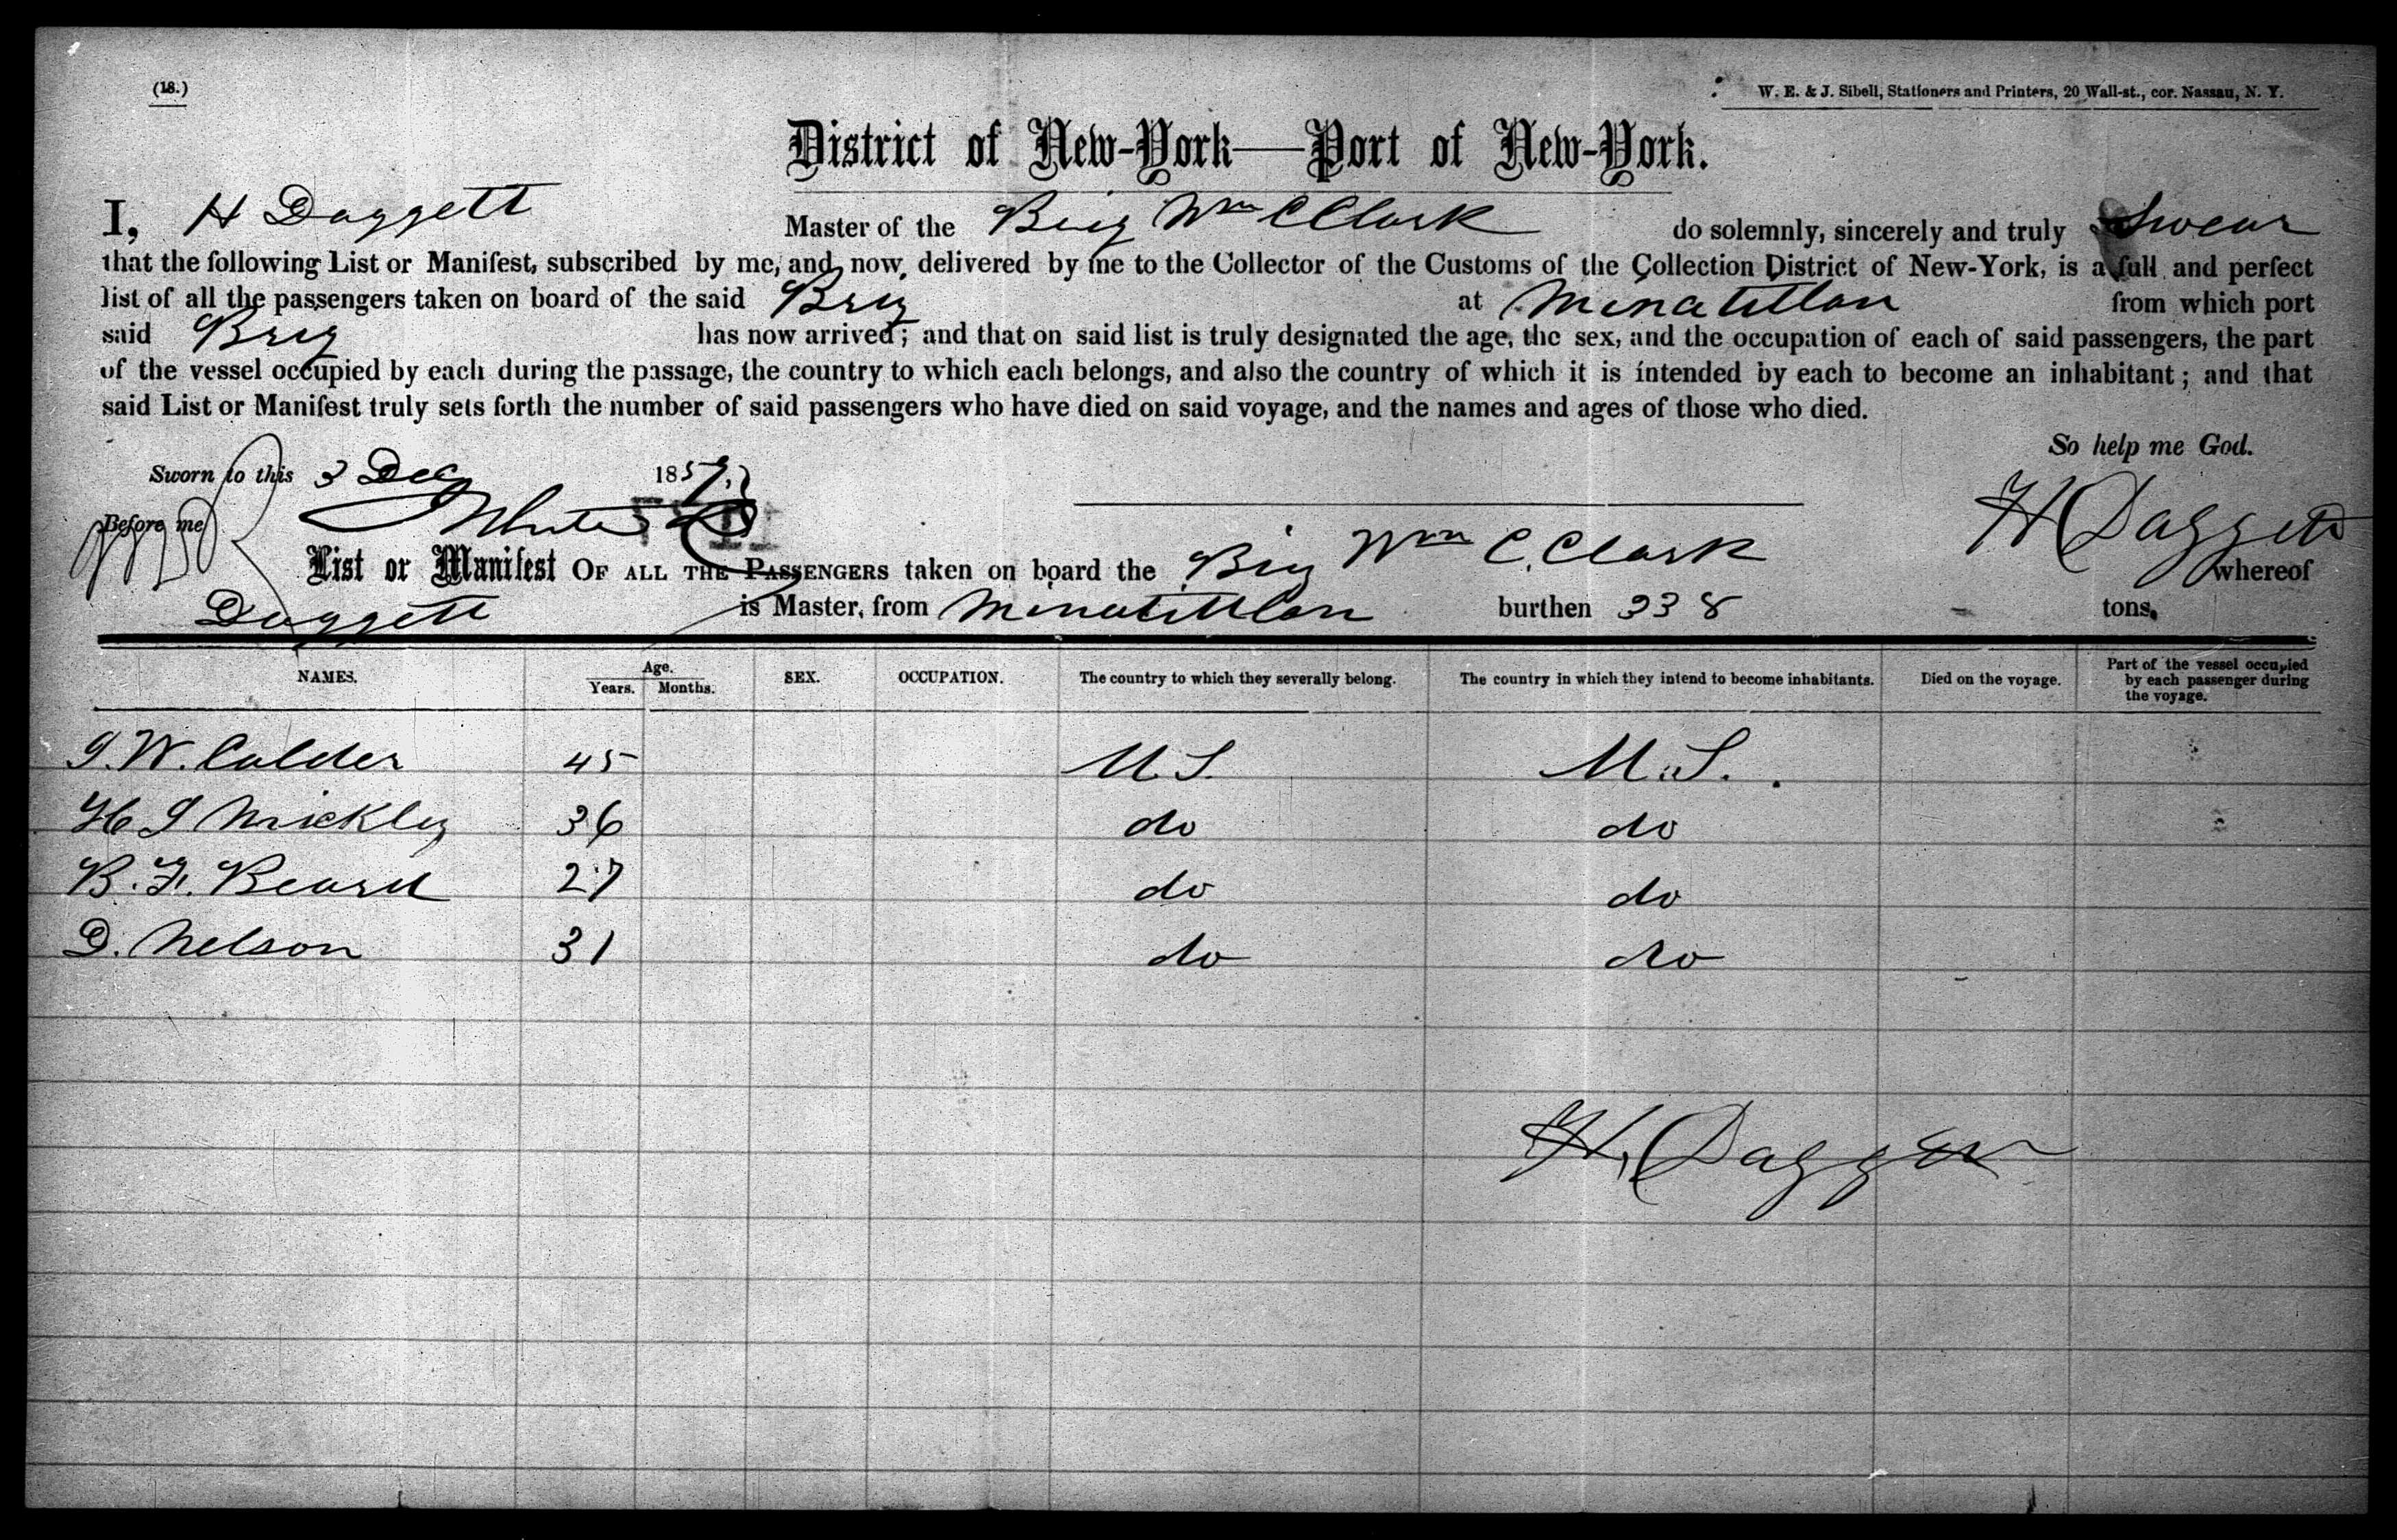 (18.)
W. E. & J. Sibell, Stationers and Printers, 20 Wall-st., cor. Nassau, N. Y.
District of New-York—Port of New-York.
I, H Daggett Master of the Brig Wm C Clark do solemnly, sincerely and truly Swear
that the following List or Manifest, subscribed by me, and now delivered by me to the Collector of the Customs of the Collection District of New-York, is a full and perfect
list of all the passengers taken on board of the said Brig at Minatitlan from which port
said Brig has now arrived; and that on said list is truly designated the age, the sex, and the occupation of each of said passengers, the part
of the vessel occupied by each during the passage, the country to which each belongs, and also the country of which it is intended by each to become an inhabitant; and that
said List or Manifest truly sets forth the number of said passengers who have died on said voyage, and the names and ages of those who died.
So help me God.
Sworn to this 3 Dec 1857
H Daggett
Before me
List or Manifest OF ALL THE PASSENGERS taken on board the Brig Wm C. Clark whereof
Daggett is Master, from Minatitlan burthen 338 tons.
NAMES. Age. Years. Months. SEX. OCCUPATION. The country to which they severally belong. The country in which they intend to become inhabitants. Died on the voyage. Part of the vessel occupied by each passenger during the voyage.
W. Calder 45 U.S. U.S.
H S Mickley 36 do do
B. F. Beard 27 do do
D. Nelson 31 do do
H. Daggett